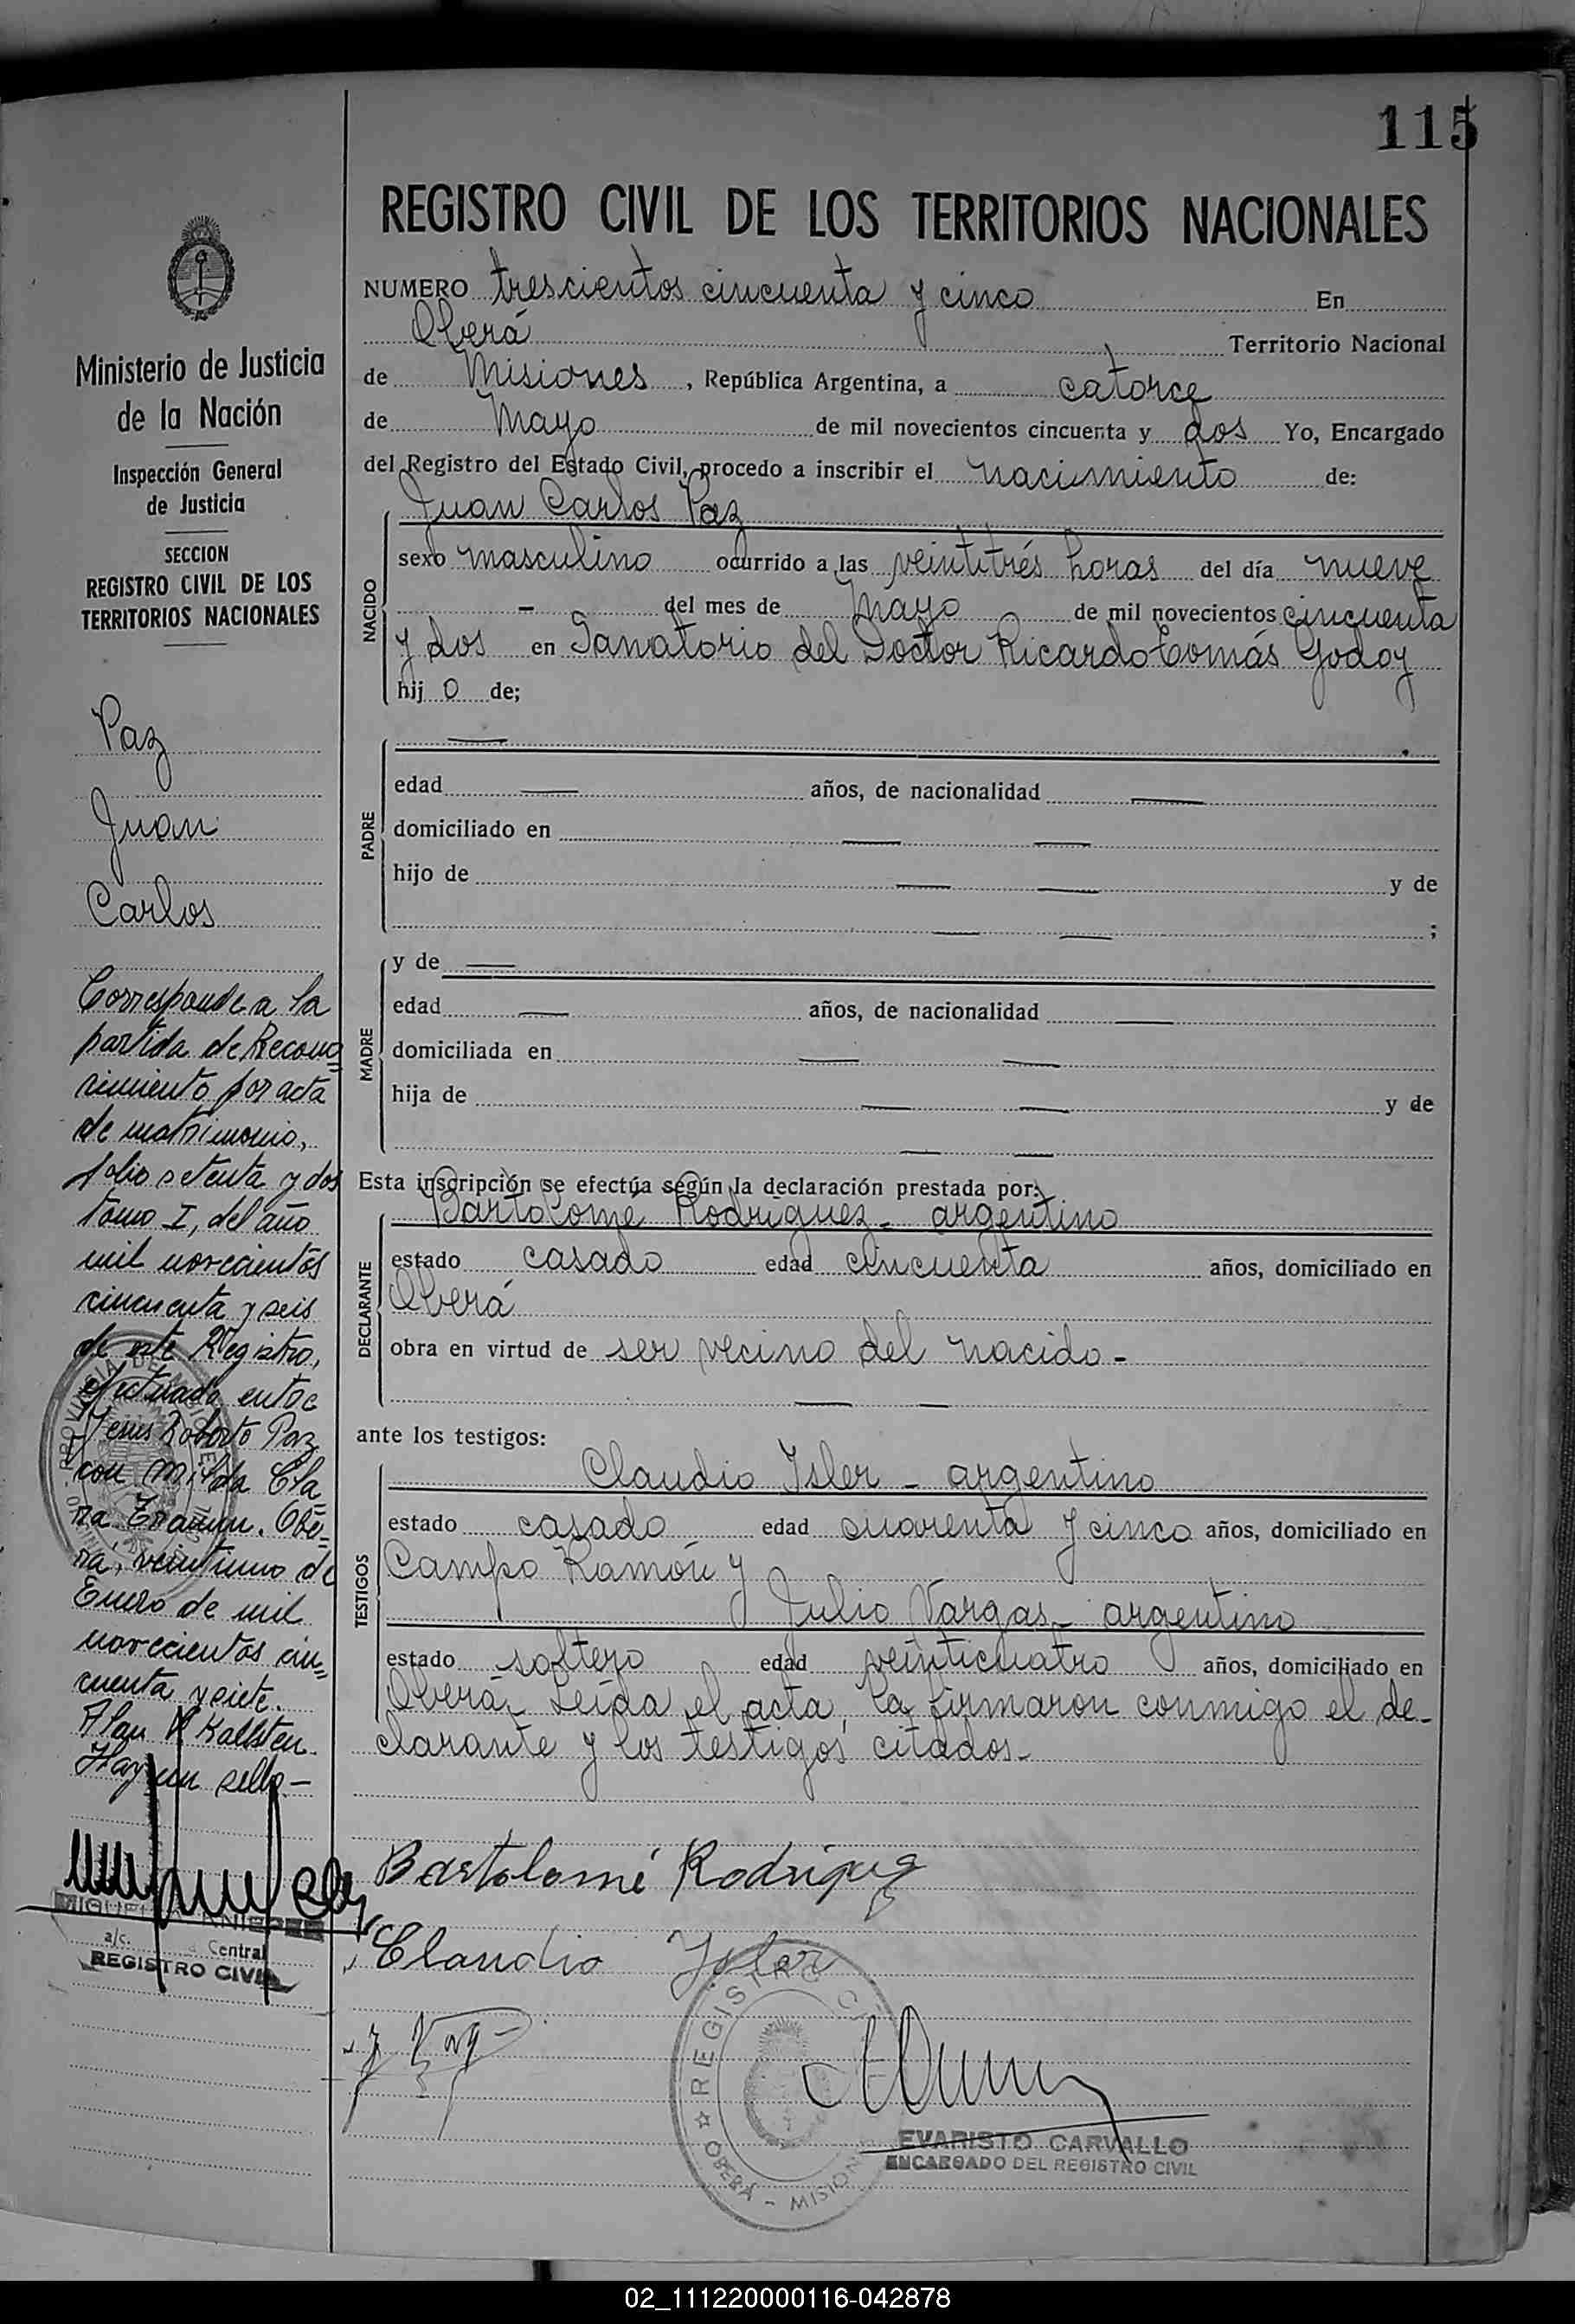 115
REGISTRO CIVIL DE LOS TERRITORIOS NACIONALES
Ministerio de Justicia
de la Nación
Inspección General
de Justicia
SECCION
REGISTRO CIVIL DE LOS
TERRITORIOS NACIONALES
Paz
Juan
Carlos
Corresponde a la
partida de Recono
cimiento por acta
de matrimonio,
folio setenta y dos
tomo I, del año
mil novecientos
cincuenta y seis
de este Registro,
efectuado entre
Jesus Roberto Paz
con Milda Cla
ra. Obe-
rá, veintiuno de
Enero de mil
novecientos cin-
cuenta y siete.
Alan Kallsten
Hay un sello-
a/c. Central
REGISTRO CIVIL
NUMERO trescientos cincuenta y cinco En
Oberá Territorio Nacional
de Misiones, República Argentina, a catorce
de Mayo de mil novecientos cincuenta y dos Yo, Encargado
del Registro del Estado Civil, procedo a inscribir el nacimiento de:
NACIDO
Juan Carlos Paz
sexo masculino ocurrido a las veintitrés horas del día nueve
- del mes de Mayo de mil novecientos cincuenta
y dos en Sanatorio del Doctor Ricardo Tomás Godoy
hijo de;
PADRE
edad — años, de nacionalidad —
domiciliado en — —
hijo de — — y de
— — ;
MADRE
y de —
edad — años, de nacionalidad —
domiciliada en — —
hija de — — y de
— —
Esta inscripción se efectúa según la declaración prestada por:
DECLARANTE
Bartolomé Rodriguez - argentino
estado casado edad cincuenta años, domiciliado en
Oberá
obra en virtud de ser vecino del nacido -
— —
ante los testigos:
TESTIGOS
Claudio Isler - argentino
estado casado edad cuarenta y cinco años, domiciliado en
Campo Ramón y
Julio Vargas - argentino
estado soltero edad veinticuatro años, domiciliado en
Oberá - Leída el acta, la firmaron conmigo el de-
clarante y los testigos citados -
Bartolomé Rodriguez
Claudio Isler
REGISTRO CIVIL
OBERÁ - MISIONES
EVARISTO CARVALLO
ENCARGADO DEL REGISTRO CIVIL
02_111220000116-042878